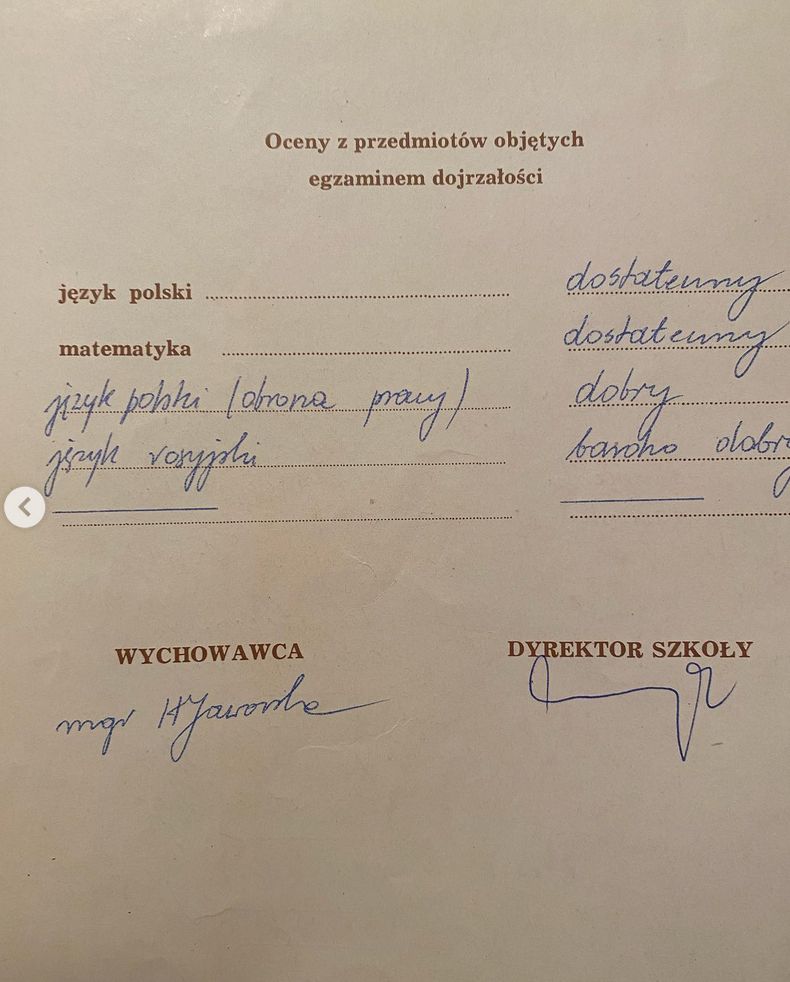 Oceny z przedmiotów objętych
egzaminem dojrzałości
język polski dostateczny
matematyka dostateczny
język polski (obrona pracy) dobry
język rosyjski bardzo dobry
WYCHOWAWCA DYREKTOR SZKOŁY
mgr